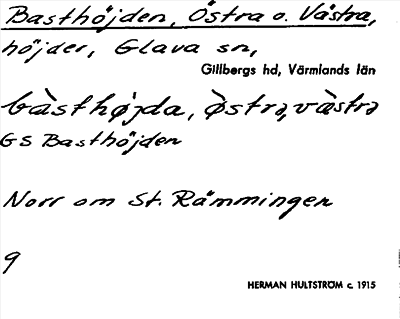 Basthöjden, Östra o. Västra,
höjder, Glava sn,
Gillbergs hd, Värmlands län
bàsthǿjda, ǿstrə, vàstrə
GS Basthöjden
Norr om St. Rämmingen
9
HERMAN HULTSTRÖM c. 1915